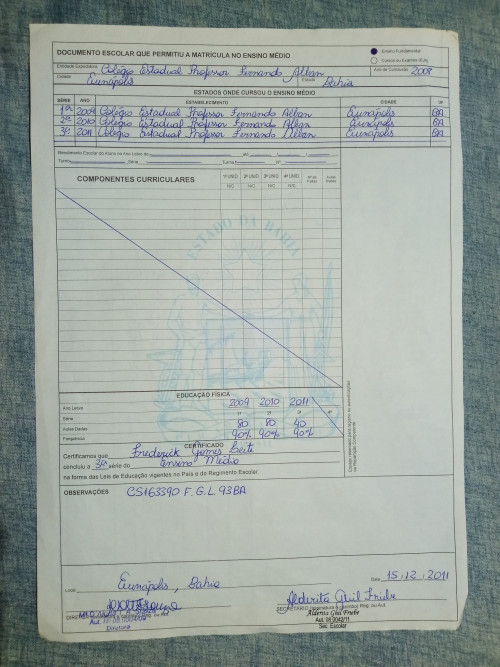 DOCUMENTO ESCOLAR QUE PERMITIU A MATRÍCULA NO ENSINO MÉDIO
Ensino Fundamental
Cursos ou Exames (EJA)
Entidade Expedidora Colégio Estadual Professor Fernando Alban
Ano de Conclusão 2008
Cidade Eunápolis Estado Bahia
ESTADOS ONDE CURSOU O ENSINO MÉDIO
SÉRIE ANO ESTABELECIMENTO CIDADE UF
1ª 2009 Colégio Estadual Professor Fernando Alban Eunápolis BA
2ª 2010 Colégio Estadual Professor Fernando Alban Eunápolis BA
3ª 2011 Colégio Estadual Professor Fernando Alban Eunápolis BA
Rendimento Escolar do Aluno no Ano Letivo de
Turma Série Turno Nº
COMPONENTES CURRICULARES
1ª UNID. 2ª UNID. 3ª UNID. 4ª UNID. Nº de Faltas Aulas Dadas
N/C N/C N/C N/C
ESTADO DA BAHIA
EDUCAÇÃO FÍSICA
Ano Letivo 2009 2010 2011
Série 1ª 2ª 3ª 4ª
Aulas Dadas 80 80 40
Frequência 90% 90% 90%
CERTIFICADO
Certificamos que Frederick Gomes Leite
concluiu a 3ª série do Ensino Médio
na forma das Leis de Educação vigentes no País e do Regimento Escolar
OBSERVAÇÕES CS163390 F.G.L.93BA
Local Eunápolis, Bahia Data 15.12.2011
Alderita Guil Friebe
SECRETÁRIO
Alderita Guil Friebe
Aut. 99.0042/11
Sec. Escolar
Diretora